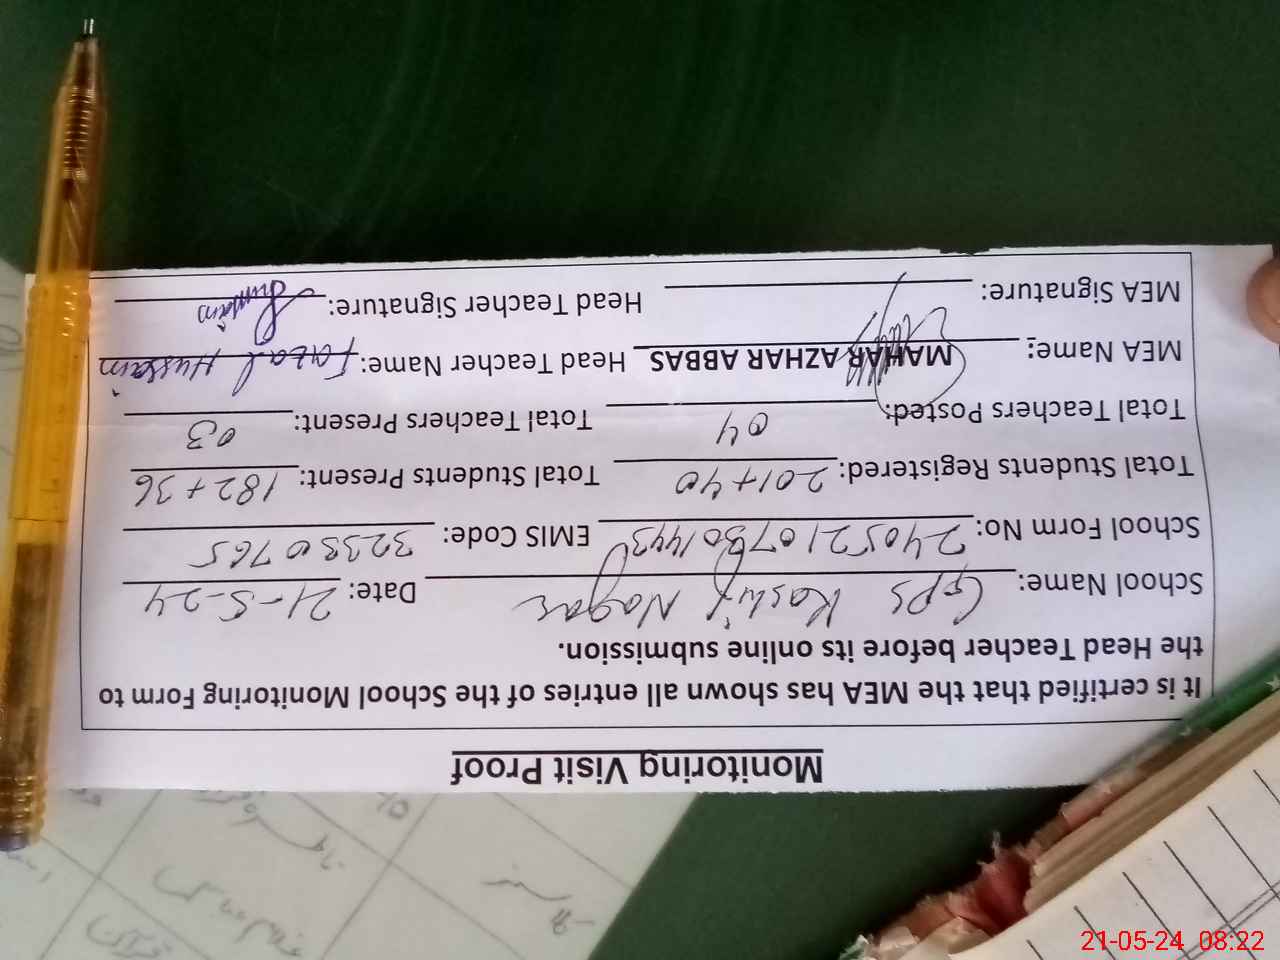 Monitoring Visit Proof
It is certified that the MEA has shown all entries of the School Monitoring Form to
the Head Teacher before its online submission.
School Name: GPS Kashif Nagar Date: 21-5-24
School Form No: 24052107301443 EMIS Code: 32330765
Total Students Registered: 201+40 Total Students Present: 182+36
Total Teachers Posted: 04 Total Teachers Present: 03
MEA Name: MAHAR AZHAR ABBAS Head Teacher Name: Fazal Hussain
MEA Signature: Head Teacher Signature: Hussain
21-05-24 08:22